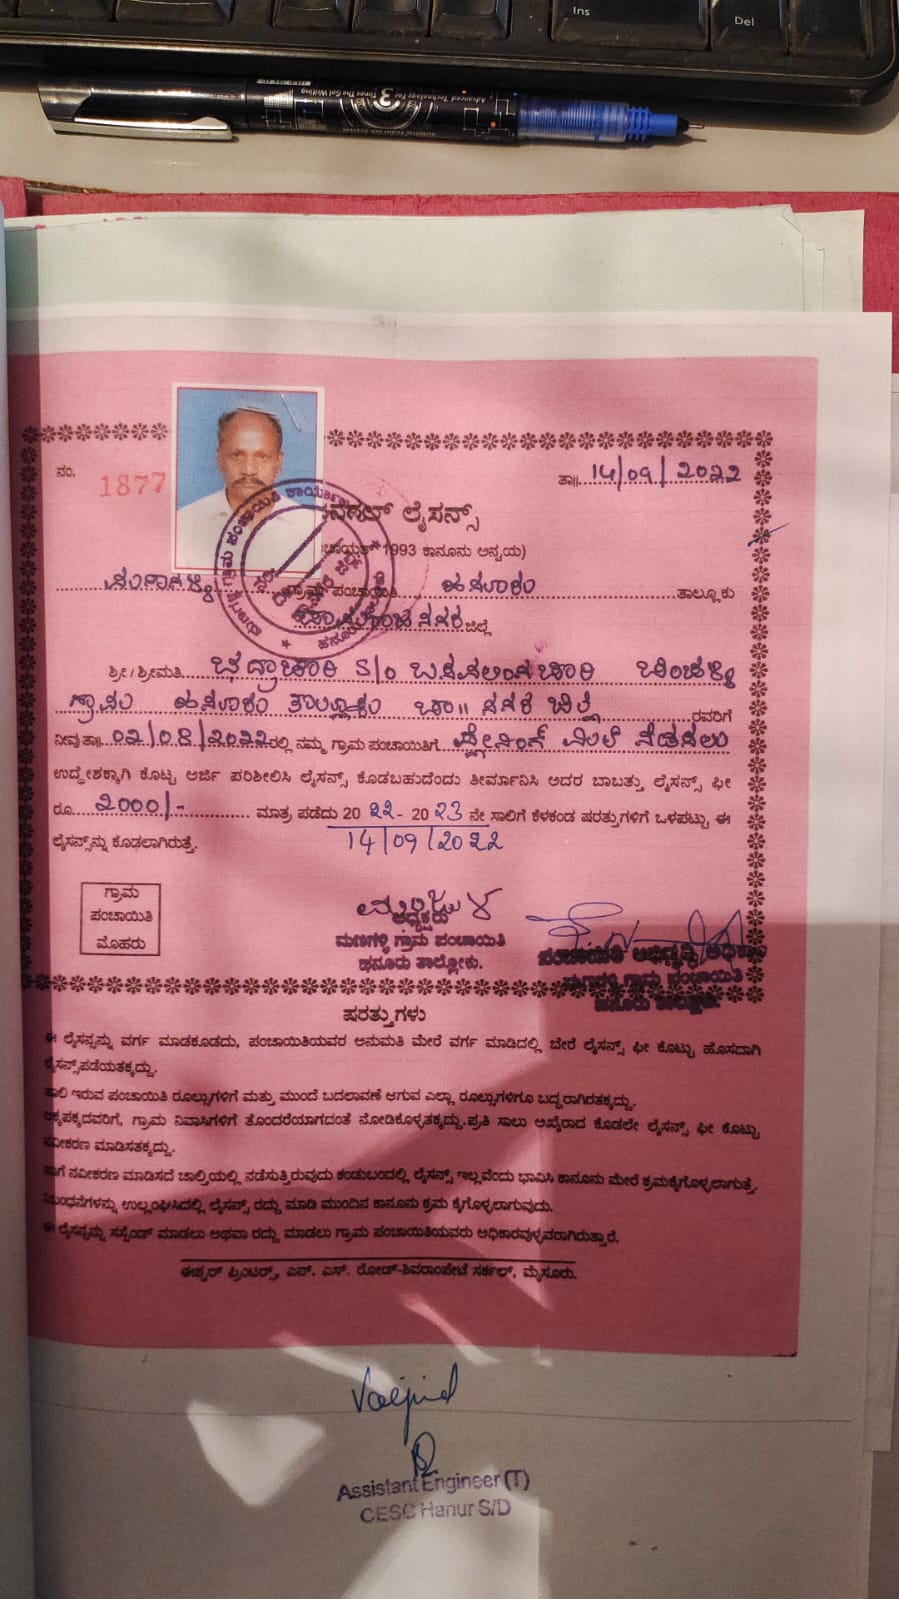 Ins
Del
Advanced Technology For
Times The Gel Writing
3
ನಂ. 1877
ತಾ॥ 14/09/2022
ಲೈಸನ್ಸ್
1993 ಕಾನೂನು ಅನ್ವಯ)
ಗ್ರಾಮ ಪಂಚಾಯಿತಿ ಹನೂರು ತಾಲ್ಲೂಕು
ಚಾಮರಾಜನಗರ ಜಿಲ್ಲೆ
ಶ್ರೀ/ಶ್ರೀಮತಿ ಭದ್ರಾಚಾರಿ S/o
ಗ್ರಾಮ ಹನೂರು ತಾಲ್ಲೂಕು ಚಾ॥ ನಗರ ಜಿಲ್ಲೆ ರವರಿಗೆ
ನೀವು ತಾ॥ 02/08/2022 ರಲ್ಲಿ ನಮ್ಮ ಗ್ರಾಮ ಪಂಚಾಯಿತಿಗೆ ಪ್ಲೇನಿಂಗ್ ಮಿಲ್ ನೆಡಸಲು
ಉದ್ದೇಶಕ್ಕಾಗಿ ಕೊಟ್ಟ ಅರ್ಜಿ ಪರಿಶೀಲಿಸಿ ಲೈಸನ್ಸ್ ಕೊಡಬಹುದೆಂದು ತೀರ್ಮಾನಿಸಿ ಅದರ ಬಾಬತ್ತು ಲೈಸನ್ಸ್ ಫೀ
ರೂ. 2000/- ಮಾತ್ರ ಪಡೆದು 2022 - 2023 ನೇ ಸಾಲಿಗೆ ಕೆಳಕಂಡ ಷರತ್ತುಗಳಿಗೆ ಒಳಪಟ್ಟು ಈ
ಲೈಸನ್ಸ್‌ನ್ನು ಕೊಡಲಾಗಿರುತ್ತೆ. 14/09/2022
ಗ್ರಾಮ
ಪಂಚಾಯಿತಿ
ಮೊಹರು
ಮಂಜುಳ
ಅಧ್ಯಕ್ಷರು
ಮಣಗಳ್ಳಿ ಗ್ರಾಮ ಪಂಚಾಯಿತಿ
ಹನೂರು ತಾಲ್ಲೋಕು.
ಪಂಚಾಯಿತಿ ಅಭಿವೃದ್ಧಿ ಅಧಿಕಾರಿ
ಮಣಗಳ್ಳಿ ಗ್ರಾಮ ಪಂಚಾಯಿತಿ
ಷರತ್ತುಗಳು
ಈ ಲೈಸನ್ಸನ್ನು ವರ್ಗ ಮಾಡಕೂಡದು, ಪಂಚಾಯಿತಿಯವರ ಅನುಮತಿ ಮೇರೆ ವರ್ಗ ಮಾಡಿದಲ್ಲಿ ಬೇರೆ ಲೈಸನ್ಸ್ ಫೀ ಕೊಟ್ಟು ಹೊಸದಾಗಿ
ಲೈಸನ್ಸ್‌ಪಡೆಯತಕ್ಕದ್ದು.
ಇರುವ ಪಂಚಾಯಿತಿ ರೂಲ್ಸುಗಳಿಗೆ ಮತ್ತು ಮುಂದೆ ಬದಲಾವಣೆ ಆಗುವ ಎಲ್ಲಾ ರೂಲ್ಸುಗಳಿಗೂ ಬದ್ಧರಾಗಿರತಕ್ಕದ್ದು.
ಅಕ್ಕಪಕ್ಕದವರಿಗೆ, ಗ್ರಾಮ ನಿವಾಸಿಗಳಿಗೆ ತೊಂದರೆಯಾಗದಂತೆ ನೋಡಿಕೊಳ್ಳತಕ್ಕದ್ದು. ಪ್ರತಿ ಸಾಲು ಅಖೈರಾದ ಕೂಡಲೇ ಲೈಸನ್ಸ್ ಫೀ ಕೊಟ್ಟು
ನವೀಕರಣ ಮಾಡಿಸತಕ್ಕದ್ದು.
ಹಾಗೆ ನವೀಕರಣ ಮಾಡಿಸದೆ ಚಾಲ್ತಿಯಲ್ಲಿ ನಡೆಸುತ್ತಿರುವುದು ಕಂಡುಬಂದಲ್ಲಿ ಲೈಸನ್ಸ್ ಇಲ್ಲವೆಂದು ಭಾವಿಸಿ ಕಾನೂನು ಮೇರೆ ಕ್ರಮಕೈಗೊಳ್ಳಲಾಗುತ್ತೆ.
ನಿಬಂಧನೆಗಳನ್ನು ಉಲ್ಲಂಘಿಸಿದಲ್ಲಿ ಲೈಸನ್ಸ್ ರದ್ದು ಮಾಡಿ ಮುಂದಿನ ಕಾನೂನು ಕ್ರಮ ಕೈಗೊಳ್ಳಲಾಗುವುದು.
ಈ ಲೈಸನ್ಸನ್ನು ಸಸ್ಪೆಂಡ್ ಮಾಡಲು ಅಥವಾ ರದ್ದು ಮಾಡಲು ಗ್ರಾಮ ಪಂಚಾಯಿತಿಯವರು ಅಧಿಕಾರವುಳ್ಳವರಾಗಿರುತ್ತಾರೆ.
ಈಶ್ವರ್ ಪ್ರಿಂಟರ್ಸ್, ಎನ್. ಎಸ್. ರೋಡ್-ಶಿವರಾಂಪೇಟೆ ಸರ್ಕಲ್, ಮೈಸೂರು.
Assistant Engineer (T)
CESC Hanur S/D